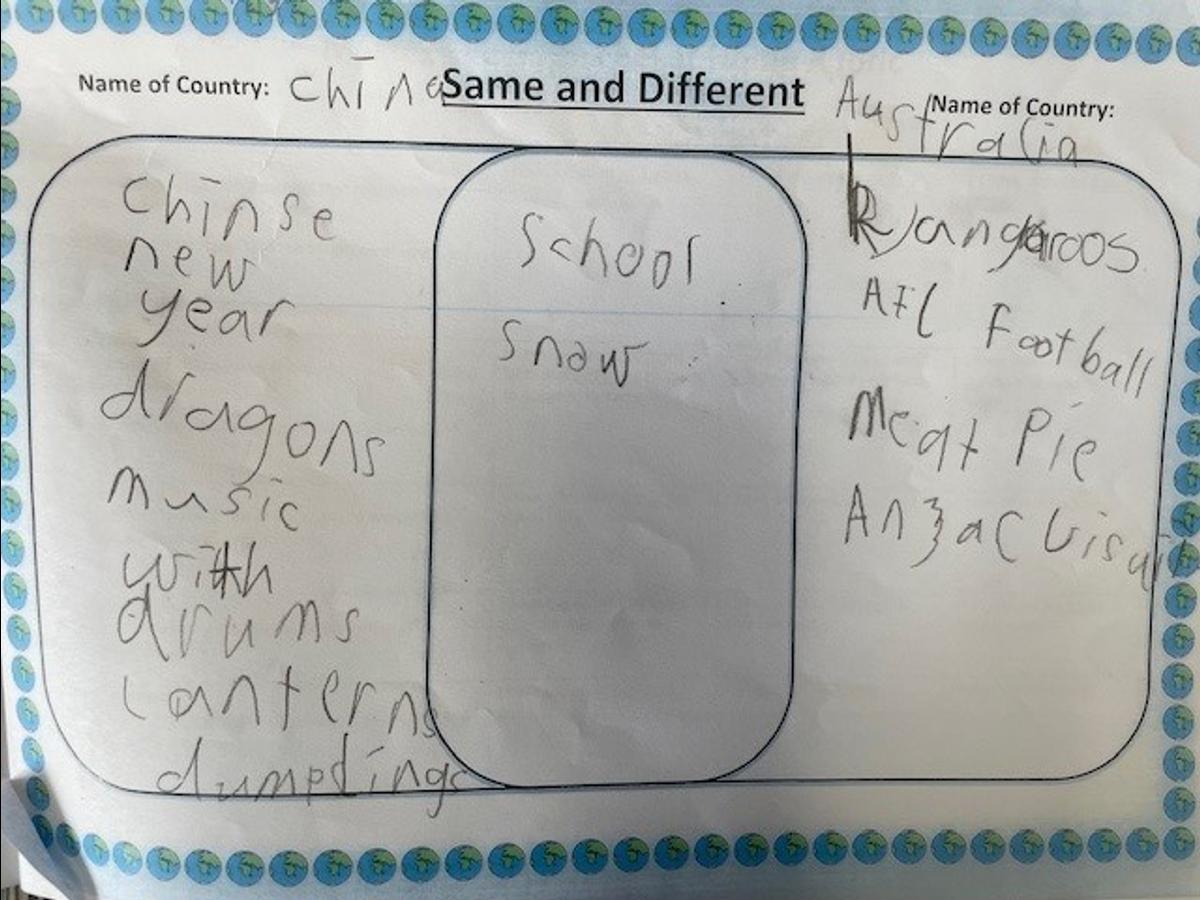 Name of Country: china
Same and Different
Name of Country:
Australia
chinse
new
year
dragons
music
with
drums
Lanterns
dumplings
School
Snow
Kangaroos
AFL Football
Meat Pie
Anzac